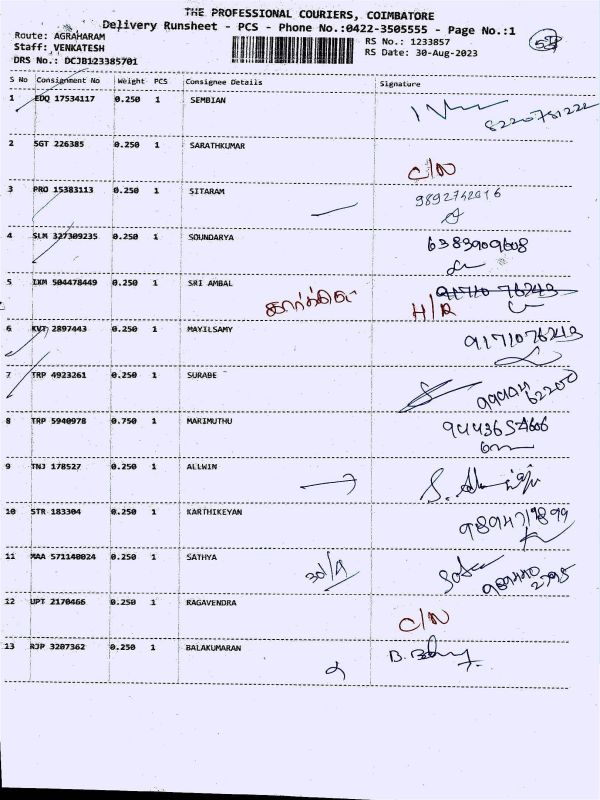 THE PROFESSIONAL COURIERS, COIMBATORE
Delivery Runsheet - PCS - Phone No.:0422-3505555 - Page No.:1
Route: AGRAHARAM
RS No.: 1233857
Staff: VENKATESH
RS Date: 30-Aug-2023
DRS No.: DCJB123385701
S No Consignment No Weight PCS Consignee Details Signature
1 EDQ 17534117 0.250 1 SEMBIAN
8220751222
2 SGT 226385 0.250 1 SARATHKUMAR
C/N
3 PRO 15383113 0.250 1 SITARAM
9892742016
4 SLM 327309235 0.250 1 SOUNDARYA 6383909608
5 IKM 504478449 0.250 1 SRI AMBAL
H/R
6 KVT 2897443 0.250 1 MAYILSAMY 9171076243
7 TRP 4923261 0.250 1 SURABE
62200
8 TRP 5940978 0.750 1 MARIMUTHU
9443654606
9 TNJ 178527 0.250 1 ALLWIN
10 STR 183304 0.250 1 KARTHIKEYAN
9894719899
11 MAA 571140024 0.250 1 SATHYA
12 UPT 2170466 0.250 1 RAGAVENDRA
C/N
13 RJP 3207362 0.250 1 BALAKUMARAN